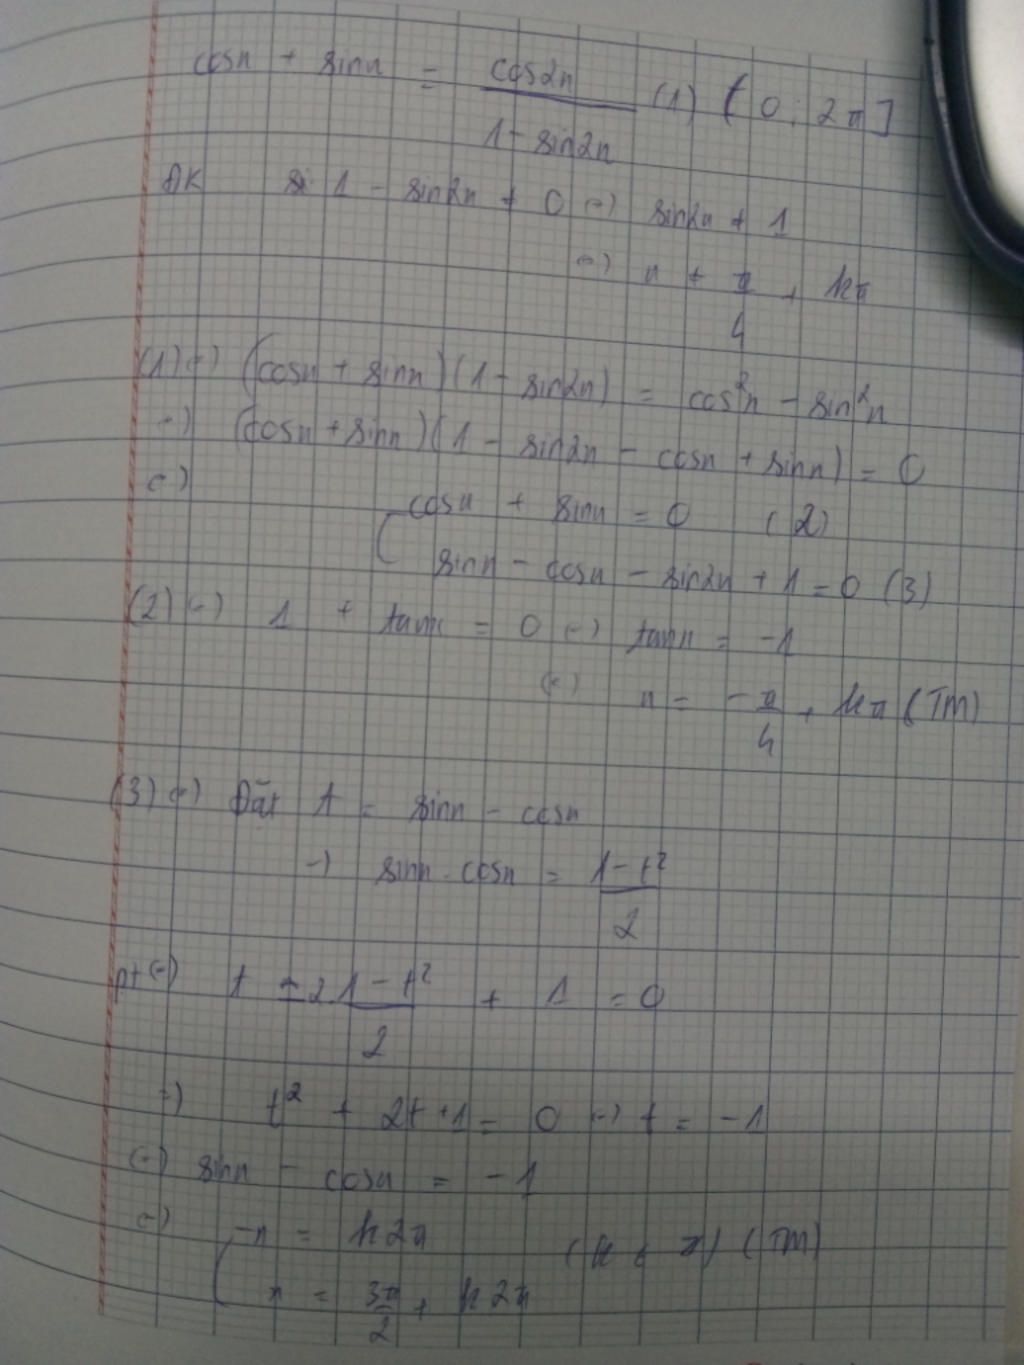 cosx + sinx = cos2x / (1 - sin2x) (1) ( 0 ; 2π ]
ĐK 1 - sin2x ≠ 0 (=) sin2x ≠ 1
(=) x ≠ π/4 + kπ
(1) (=) (cosx + sinx)(1 - sin2x) = cos²x - sin²x
(=) (cosx + sinx)(1 - sin2x - cosx + sinx) = 0
(=) [ cosx + sinx = 0 (2)
sinx - cosx - sin2x + 1 = 0 (3)
(2) (=) 1 + tanx = 0 (=) tanx = -1
(=) x = -π/4 + kπ (TM)
(3) (=) Đặt t = sinx - cosx
=) sinx . cosx = (1 - t²) / 2
pt (=) t - 2 (1 - t²) / 2 + 1 = 0
=) t² + 2t + 1 = 0 (=) t = -1
(=) sinx - cosx = -1
(=) [ x = k2π (k ∈ Z) (TM)
x = 3π/2 + k2π